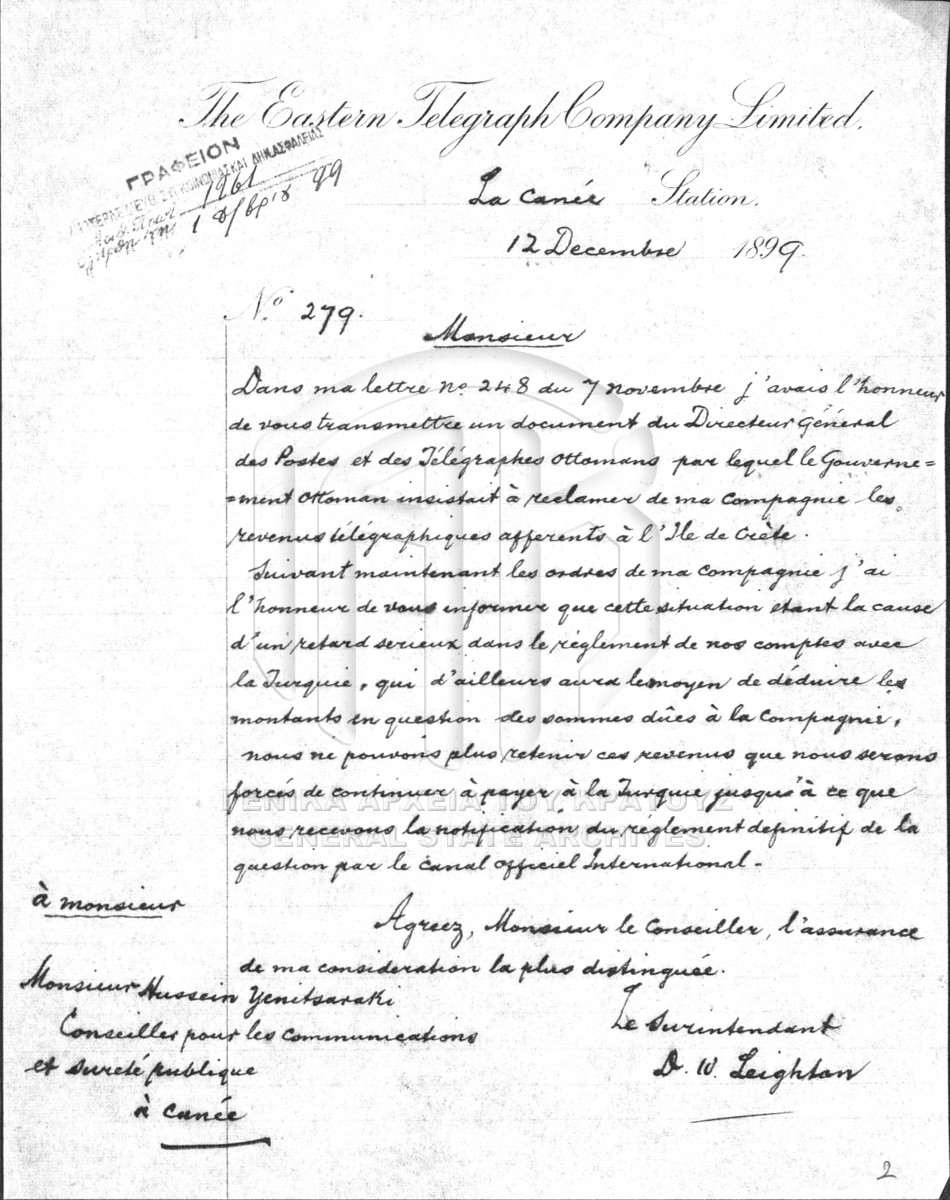 The Eastern Telegraph Company Limited.
ΓΡΑΦΕΙΟΝ
ΚΑΙ ΔΗΜ. ΑΣΦΑΛΕΙΑΣ
1961
1 99
La Canée Station.
12 Decembre 1899.
No. 279.
Monsieur
Dans ma lettre no. 248 du 7 novembre j'avais l'honneur
de vous transmettre un document du Directeur Général
des Postes et des Télégraphes Ottomans par lequel le Gouverne=
=ment Ottoman insistait à reclamer de ma Compagnie les
revenus télégraphiques afferents à l'Ile de Crète.
Suivant maintenant les ordres de ma Compagnie j'ai
l'honneur de vous informer que cette situation etant la cause
d'un retard serieux dans le règlement de nos comptes avec
la Turquie, qui d'ailleurs aura le moyen de déduire les
montants en question des sommes dûes à la Compagnie,
nous ne pouvons plus retenir ces revenus que nous serons
forcés de continuer à payer à la Turquie jusqu'à ce que
nous recevons la notification du règlement definitif de la
question par le canal officiel International.
ΓΕΝΙΚΑ ΑΡΧΕΙΑ ΤΟΥ ΚΡΑΤΟΥΣ
GENERAL STATE ARCHIVES
Agreez, Monsieur le Conseiller, l'assurance
de ma consideration la plus distinguée.
Le Surintendant
D. W. Leighton
à monsieur
Monsieur Hussein Yenitsaraki
Conseiller pour les Communications
et sureté publique
à Canée
2